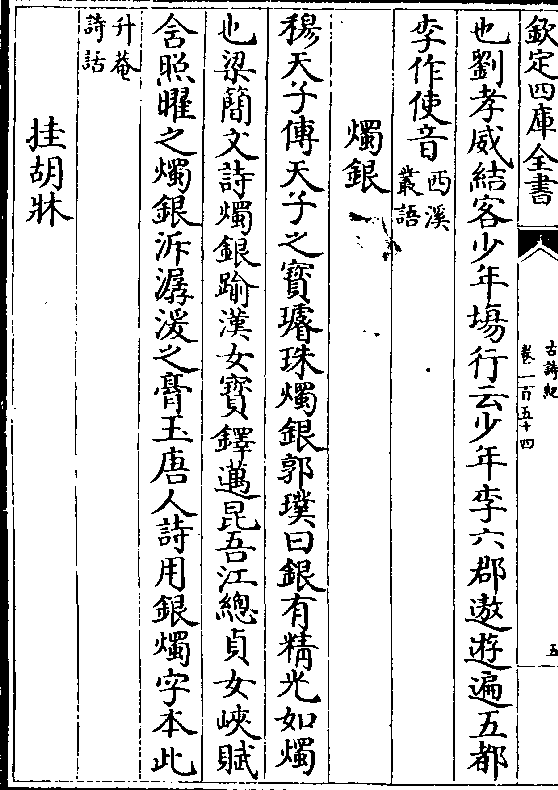 欽定四庫全書
古詩紀
卷一百五十四
五
也劉孝威結客少年塲行云少年李六郡遨遊遍五都
李作使音西溪
叢語
燭銀
穆天子傳天子之寳璿珠燭銀郭璞曰銀有精光如燭
也梁簡文詩燭銀踰漢女寳鐸邁昆吾江總貞女峽賦
含照曜之燭銀泝潺湲之膏玉唐人詩用銀燭字本此
升菴
詩話
挂胡牀